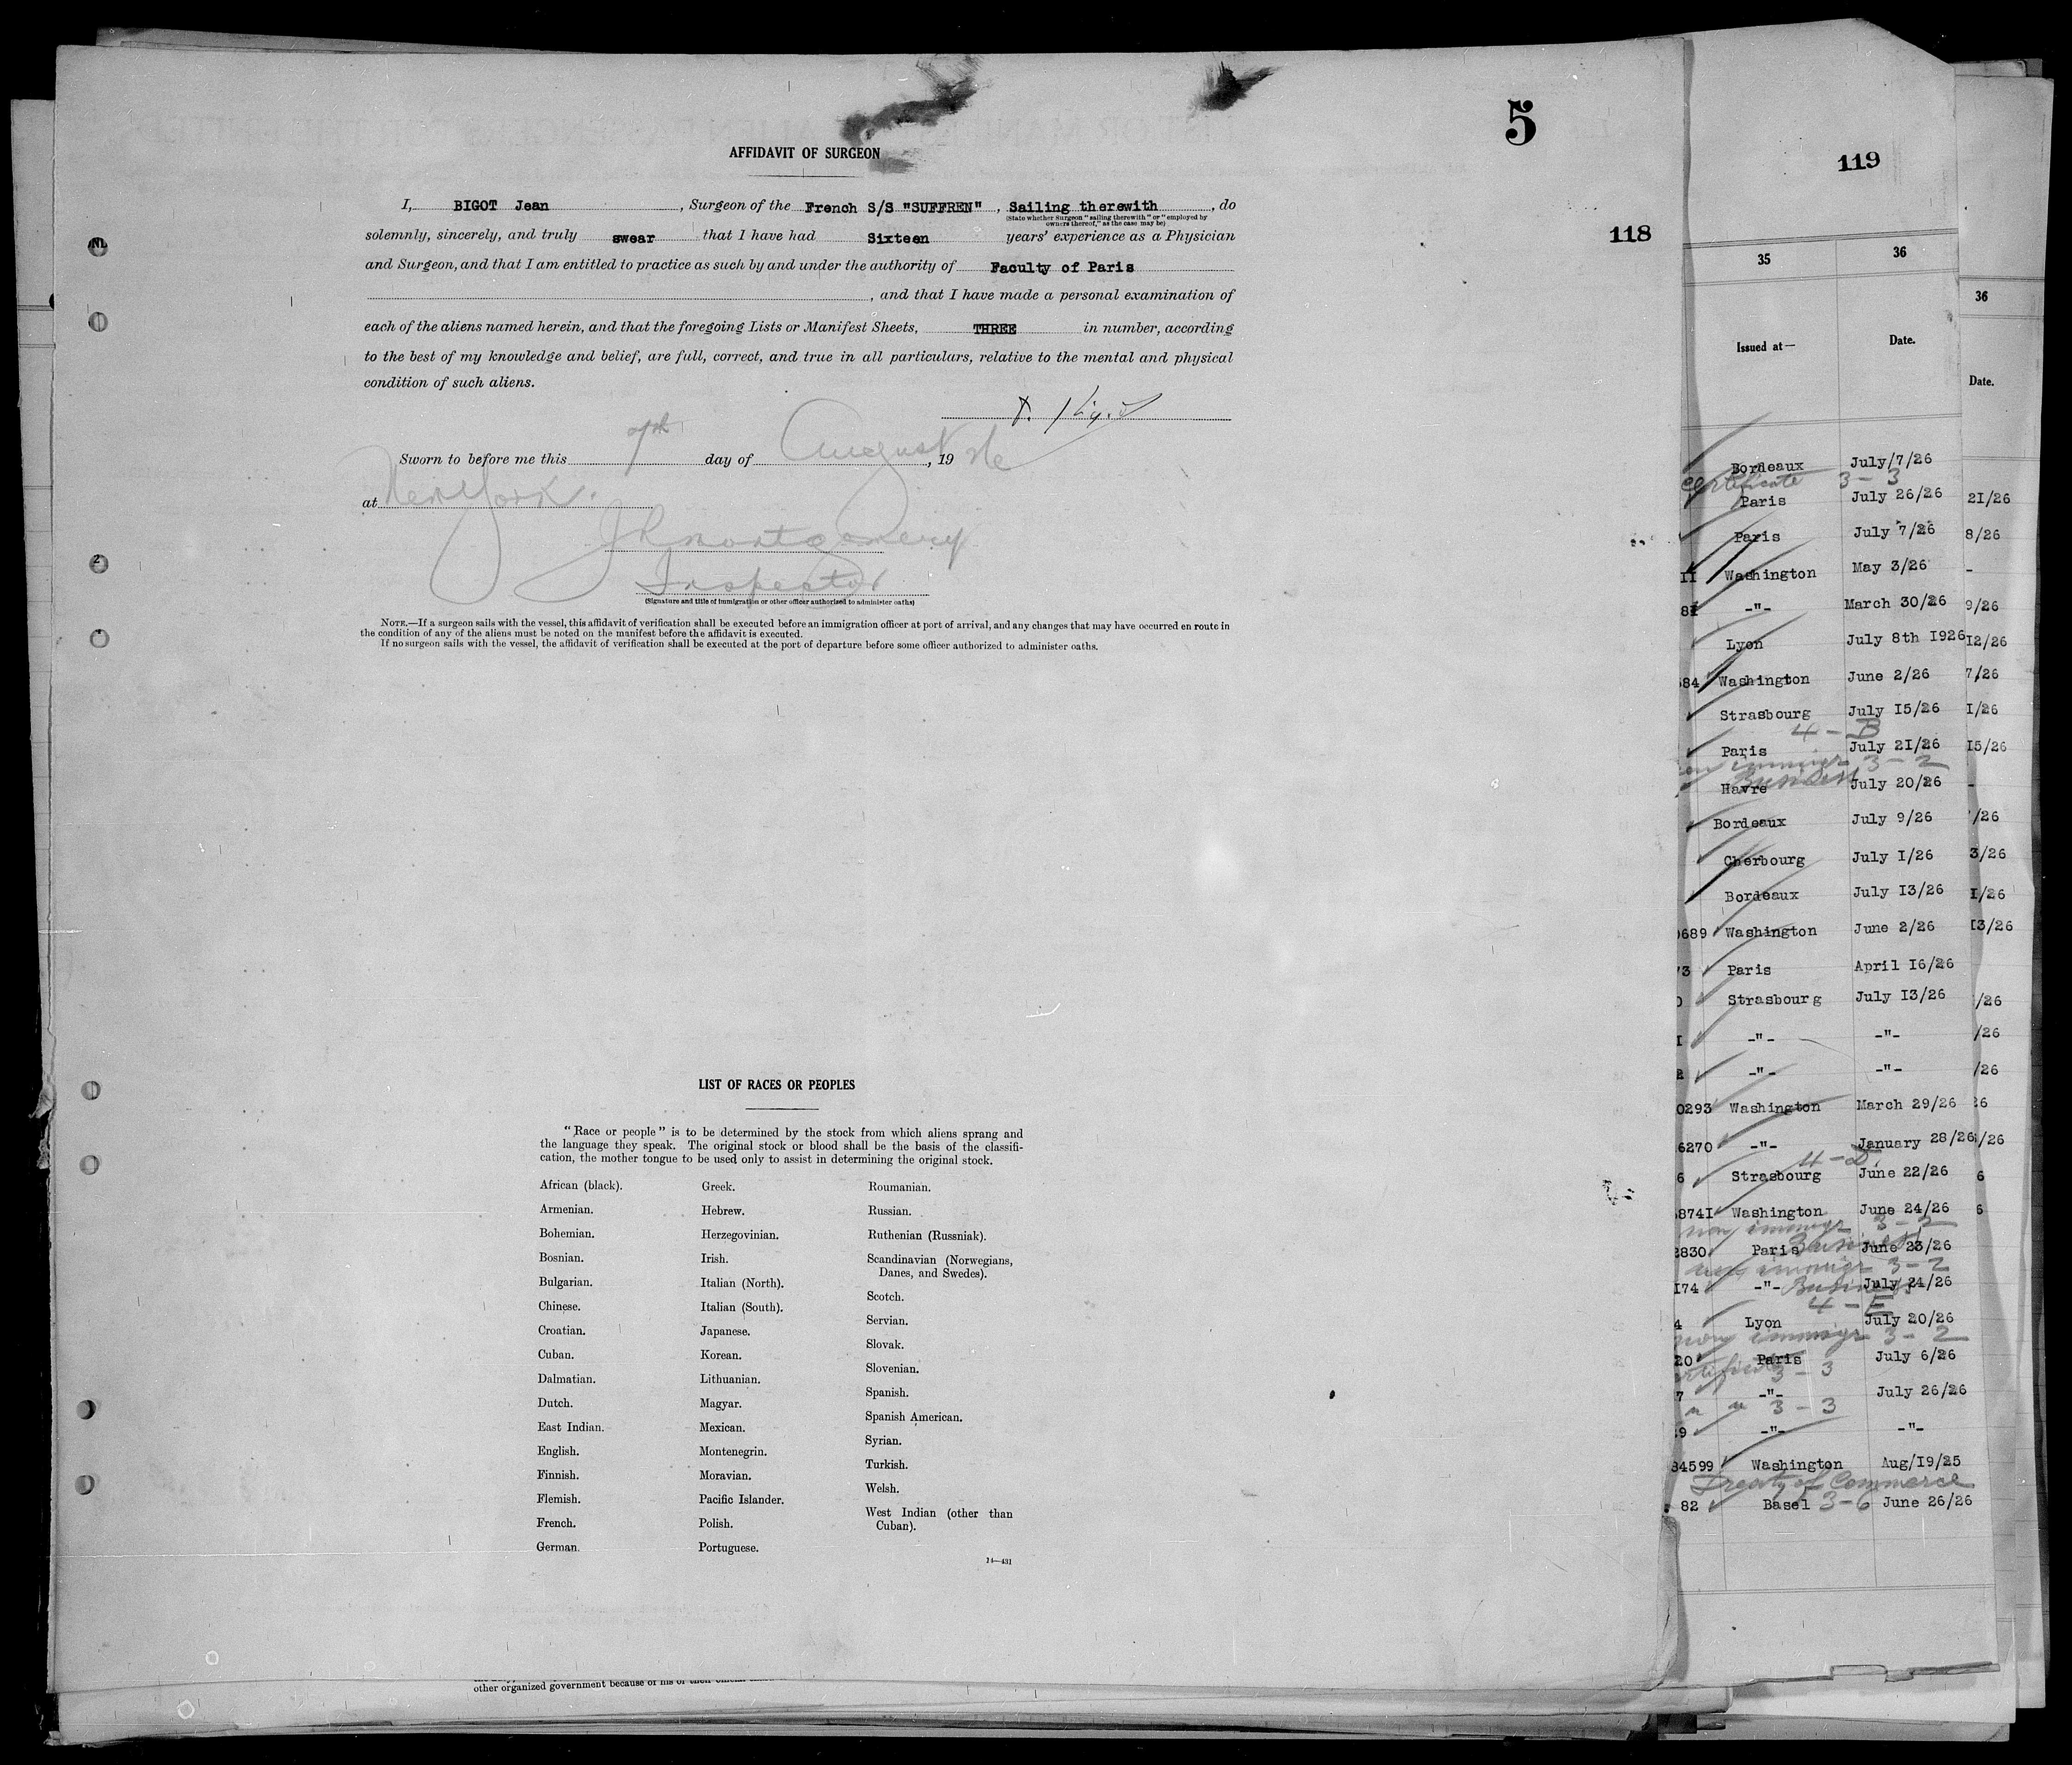 5
119
118
AFFIDAVIT OF SURGEON
I, BIGOT Jean, Surgeon of the French S/S "SUFFREN", Sailing therewith, do
(State whether Surgeon "sailing therewith" or "employed by
owners thereof," as the case may be)
solemnly, sincerely, and truly swear that I have had Sixteen years' experience as a Physician
and Surgeon, and that I am entitled to practice as such by and under the authority of Faculty of Paris
, and that I have made a personal examination of
each of the aliens named herein, and that the foregoing Lists or Manifest Sheets, THREE in number, according
to the best of my knowledge and belief, are full, correct, and true in all particulars, relative to the mental and physical
condition of such aliens.
Sworn to before me this 7th day of August, 19
at New York.
JRMontgomery
Inspector
(Signature and title of immigration or other officer authorized to administer oaths)
NOTE.—If a surgeon sails with the vessel, this affidavit of verification shall be executed before an immigration officer at port of arrival, and any changes that may have occurred en route in
the condition of any of the aliens must be noted on the manifest before the affidavit is executed.
If no surgeon sails with the vessel, the affidavit of verification shall be executed at the port of departure before some officer authorized to administer oaths.
LIST OF RACES OR PEOPLES
"Race or people" is to be determined by the stock from which aliens sprang and
the language they speak. The original stock or blood shall be the basis of the classifi-
cation, the mother tongue to be used only to assist in determining the original stock.
African (black).
Armenian.
Bohemian.
Bosnian.
Bulgarian.
Chinese.
Croatian.
Cuban.
Dalmatian.
Dutch.
East Indian.
English.
Finnish.
Flemish.
French.
German.
Greek.
Hebrew.
Herzegovinian.
Irish.
Italian (North).
Italian (South).
Japanese.
Korean.
Lithuanian.
Magyar.
Mexican.
Montenegrin.
Moravian.
Pacific Islander.
Polish.
Portuguese.
Roumanian.
Russian.
Ruthenian (Russniak).
Scandinavian (Norwegians,
Danes, and Swedes).
Scotch.
Servian.
Slovak.
Slovenian.
Spanish.
Spanish American.
Syrian.
Turkish.
Welsh.
West Indian (other than
Cuban).
14—431
other organized government because of his or their
35 36
Issued at— Date.
Bordeaux July/7/26
certificate 3-3
Paris July 26/26
Paris July 7/26
II Washington May 3/26
81 -"- March 30/26
Lyon July 8th 1926
84 Washington June 2/26
Strasbourg July 15/26
4-B
Paris July 21/26
non immigr 3-2
Business
Havre July 20/26
Bordeaux July 9/26
Cherbourg July 1/26
Bordeaux July 13/26
0689 Washington June 2/26
73 Paris April 16/26
Strasbourg July 13/26
-"- -"-
2 -"- -"-
0293 Washington March 29/26
6270 -"- January 28/26
4-D
6 Strasbourg June 22/26
8741 Washington June 24/26
non immigr 3-2
Business
2830 Paris June 23/26
non immigr 3-2
174 -"- Business July 24/26
4-E
4 Lyon July 20/26
non immigr 3-2
20 Paris July 6/26
3-3
7 -"- July 26/26
" " 3-3
9 -"- -"-
84599 Washington Aug/19/25
Treaty of Commerce
82 Basel 3-6 June 26/26
36
Date.
21/26
8/26
-
9/26
12/26
7/26
1/26
15/26
-
/26
3/26
1/26
13/26
/26
/26
/26
26
/26
6
6